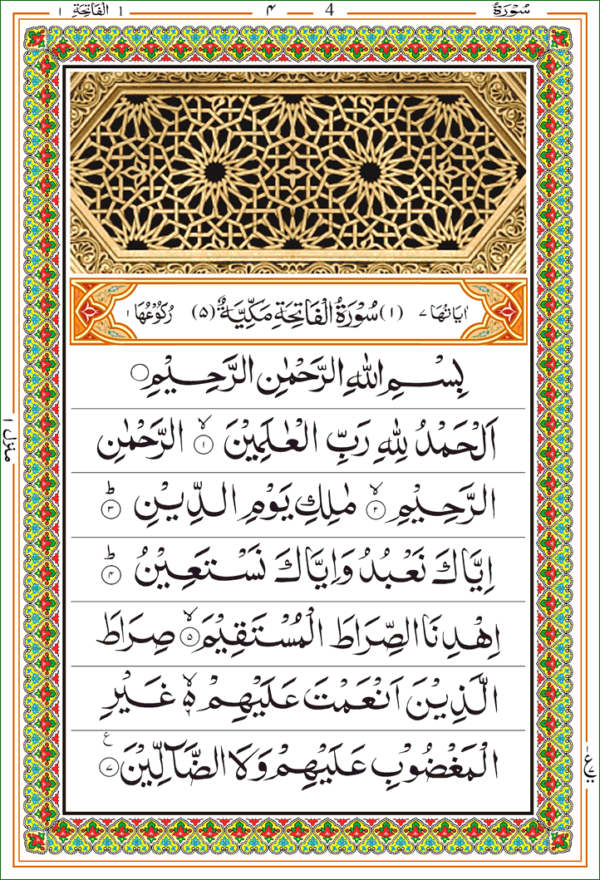 سُوْرَۃُ 4 ۴ الْفَاتِحَۃِ ۱
اٰیَاتُهَا ۷ (۱) سُوْرَۃُ الْفَاتِحَۃِ مَکِّیَّۃٌ (۵) رُکُوْعُهَا ۱
بِسْمِ اللهِ الرَّحْمٰنِ الرَّحِيْمِ
اَلْحَمْدُ لِلّٰهِ رَبِّ الْعٰلَمِيْنَ ۙ‏ ﴿۱﴾ الرَّحْمٰنِ
الرَّحِيْمِ ۙ‏ ﴿۲﴾ مٰلِكِ يَوْمِ الدِّيْنِ ؕ‏ ﴿۳﴾
اِيَّاكَ نَعْبُدُ وَاِيَّاكَ نَسْتَعِيْنُ ؕ‏ ﴿۴﴾
اِهْدِنَا الصِّرَاطَ الْمُسْتَقِيْمَ ۙ‏ ﴿۵﴾ صِرَاطَ
الَّذِيْنَ اَنْعَمْتَ عَلَيْهِمْ ۙ۬ ۵ غَيْرِ
الْمَغْضُوْبِ عَلَيْهِمْ وَلَا الضَّآلِّيْنَ ﴿۷﴾ ع
منزل ۱